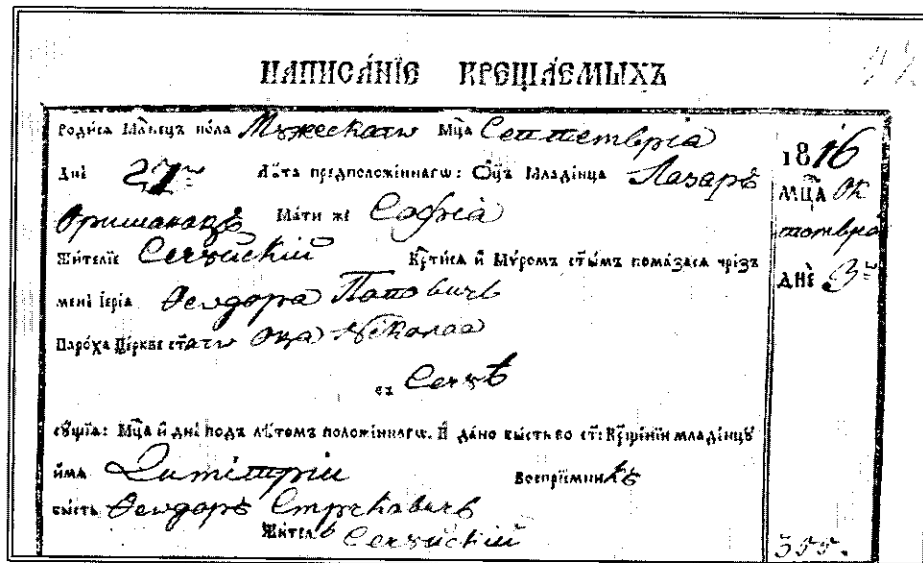 НАПИСА́НІЕ КРЕЩА́ЕМЫХЪ
Роди́сѧ Млⷣнецъ по́ла Мꙋжескагѡ Мц҃а Септемвріа
Днѐ 27 Лѣ́та предположе́ннагѡ: Ѻц҃ъ Младе́нца Лазаръ
Оришановъ Ма́ти же Софіа
Жи́теліе Сечꙋйскій Кр҃ти́сѧ и҆ Мѵ́ромъ ст҃ы́мъ пома́засѧ чре́зъ
менѐ Іере́а Ѳеодора Поповичъ
Паро́ха Це́ркве ст҃а́гѡ Оца Николаа
въ Сечꙋѣ
сꙋ́щїѧ: Мц҃а и҆ днѐ под̾ лѣ́томъ положе́ннагѡ. И҆ дано̀ бы́сть во ст҃: Кр҃ще́нїи младе́нцꙋ
и҆́мѧ Димітрій Воспрїе́мникъ
бы́сть Ѳеодоръ Стрековичъ
Жи́тель Сечꙋйскій
1816
МЦ҃А Ок
томвріа
ДНѐ 3
355.